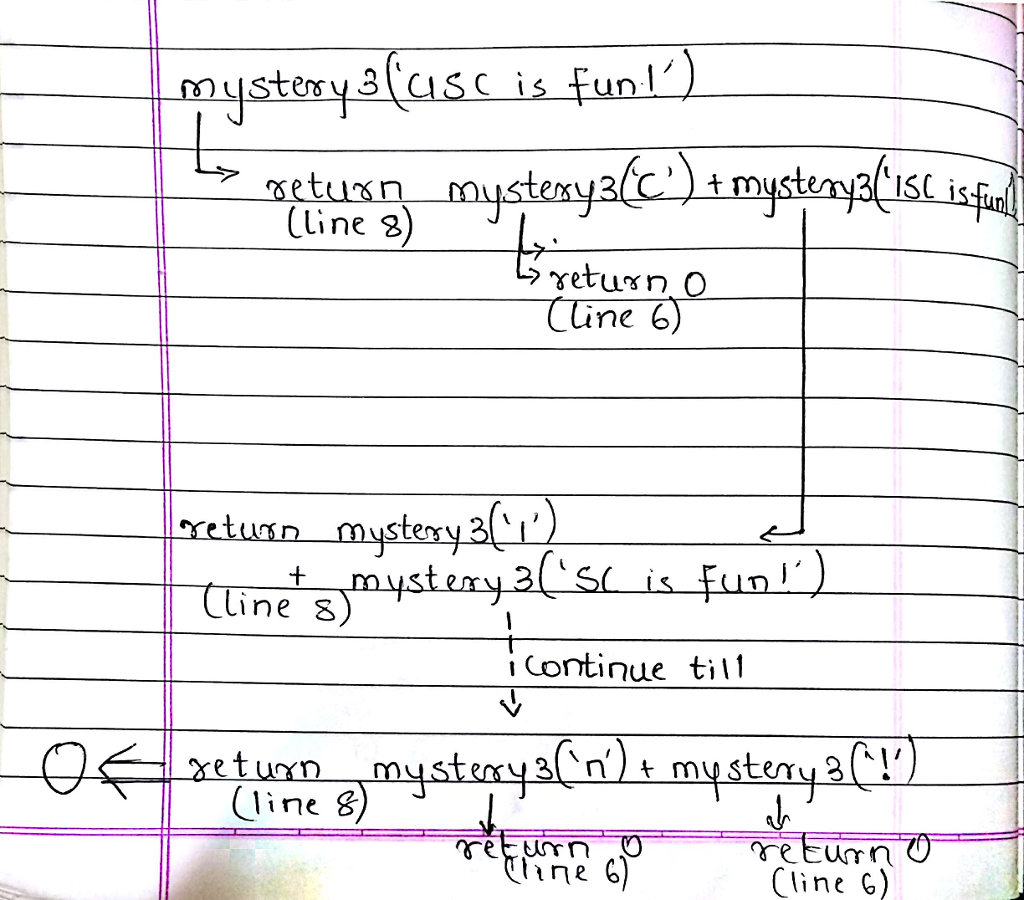 mystery3('CISC is fun!')
return mystery3('C') + mystery3('ISC is fun!
(line 8)
return 0
(line 6)
return mystery3('I')
+ mystery3('SC is fun!')
(line 8)
continue till
0 ← return mystery3('n') + mystery3('!')
(line 8)
return 0 return 0
(line 6) (line 6)